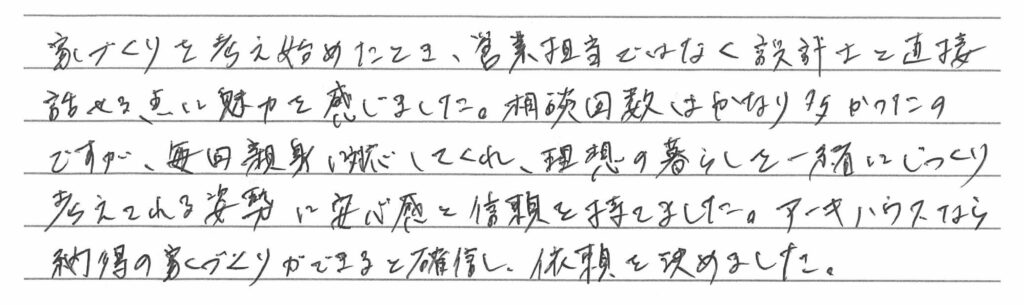 家づくりを考え始めたとき、営業担当ではなく設計士と直接
話せる点に魅力を感じました。相談回数はかなり多かったの
ですが、毎回親身に対応してくれ、理想の暮らしを一緒にじっくり
考えてくれる姿勢に安心感と信頼を持てました。アーキハウスなら
納得の家づくりができると確信し、依頼を決めました。